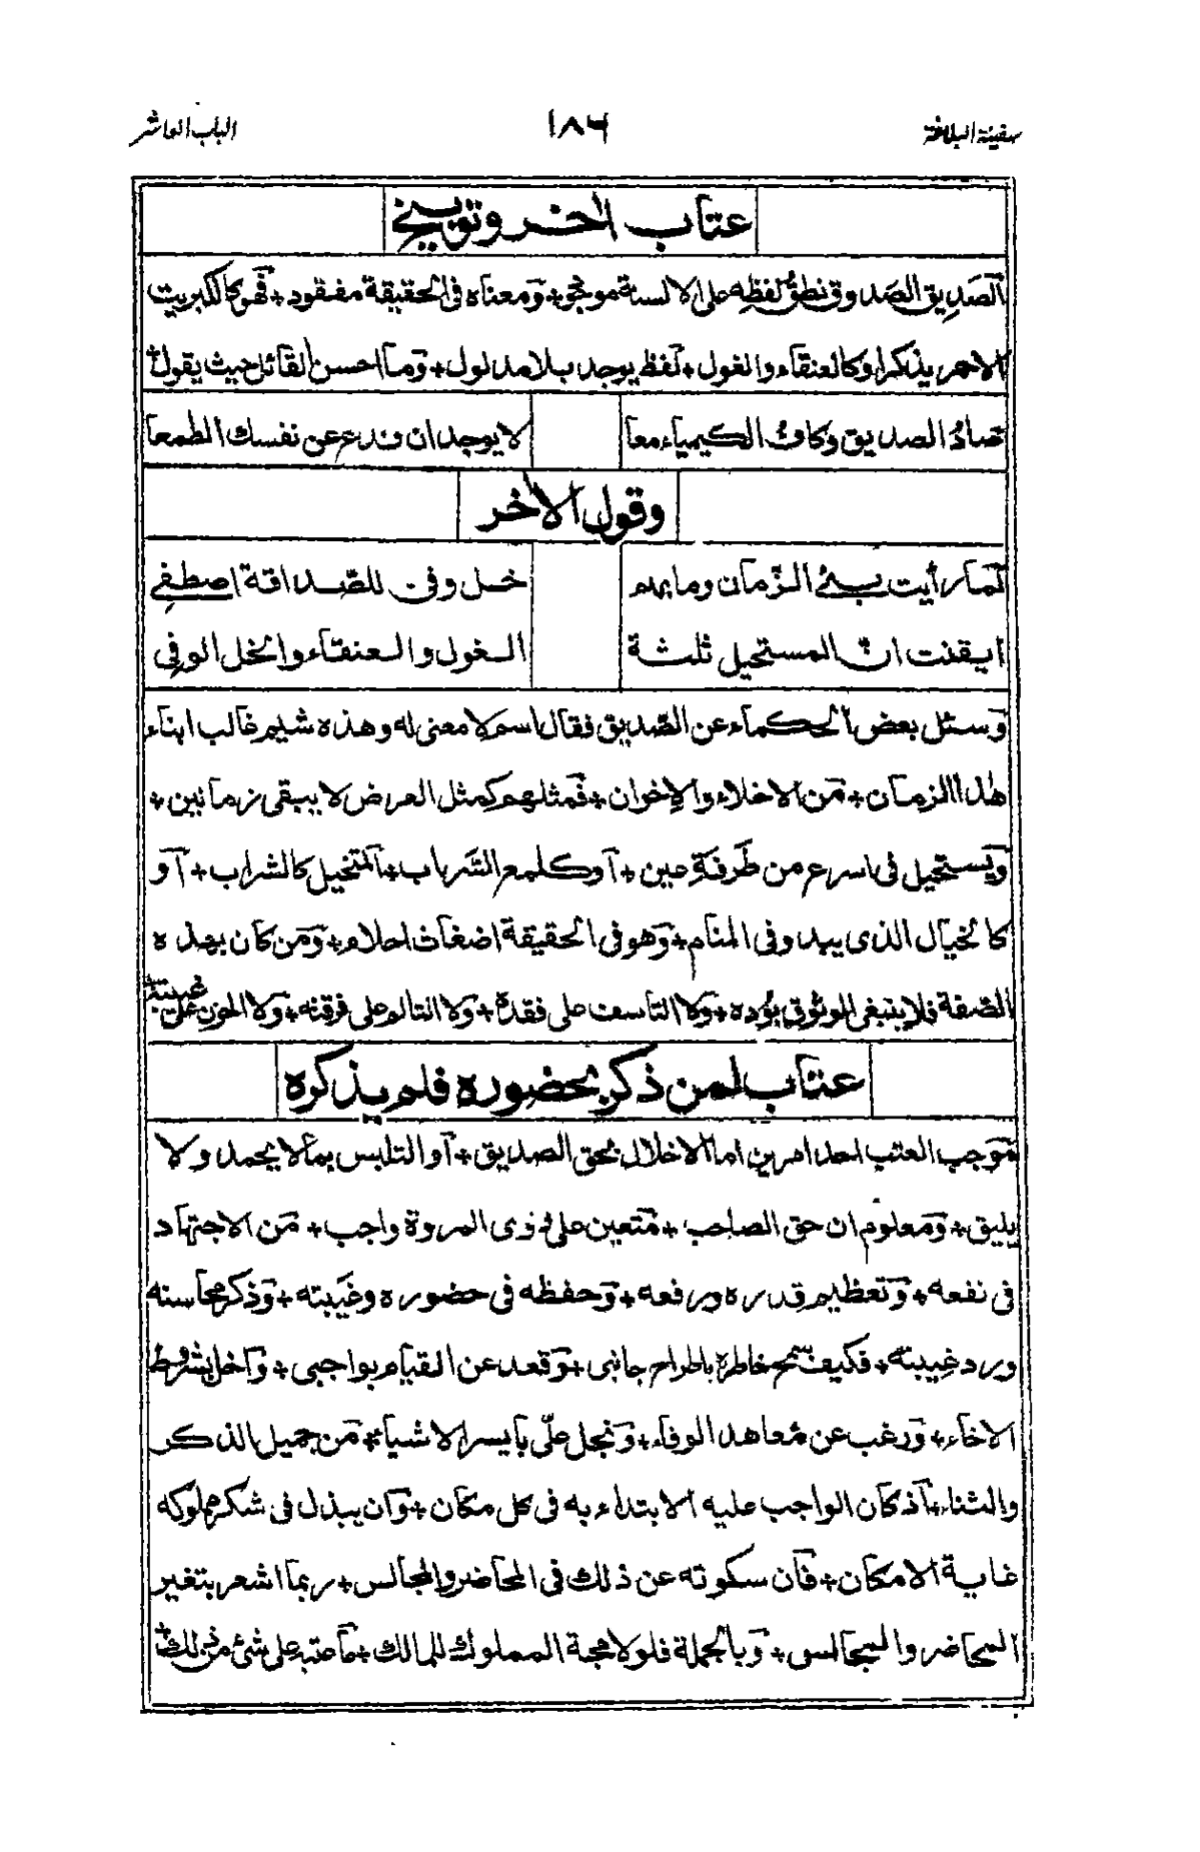 سفينة البلاغة
١٨٦
الباب العاشر
عتاب اٰخر وتوبيخ
اَلصَدِيق الصَدوق نطقُ لفظِه على الالسنة موجود + وَمعناه فى الحقيقة مفقود + فَهو كالكبريت
الاحمر يذكر او كالعنقاء والغول + لَفظ يوجد بلا مدلول + وَما احسن القائل حيث يقول +
صادُ الصديق وكافُ الكيمياء معا
لا يوجدان فدع عن نفسك الطمعا
وقول الاٰخر
لَما رأيت بنى الزّمان وما بهم
خل وفى للصّداقة اصطفى
ايقنت انّ المستحيل ثلثة
الغول والعنقاء والخل الوفى
وَسئل بعض الحكماء عن الصّديق فقال اسم لا معنى له وهذه شيم غالب ابناء
هذا الزمان + مَن الاخلاء والاِخوان + فَمثلهم كمثل العرض لا يبقى زمانين +
وَيستحيل فى اسرع من طَرفةِ عين + اَو كلمع السَراب + اَلمتخيل كالشراب + اَو
كالخيال الذى يبدو فى المنام + وَهو فى الحقيقة اضغاث احلام + وَمن كان بهذه
الصّفة فلا ينبغى الموثوق بوُده + وَلا التاسف على فقدهٖ + وَلا التالم على فرقته + وَلا الحزن على غيبته +
عتاب لمن ذكر بحضوره فلم يذكره
مَوجب العتب احد امرين اما الاخلال بحق الصديق + اَو التلبس بما لا يحمد ولا
يليق + وَمعلوم ان حق الصاحب + مَتعين على ذوى المروة واجب + مَن الاجتهاد
فى نفعه + وَتعظيم قدره ورفعه + وَحفظه فى حضوره وغَيبته + وَذكر محاسنه
ورد غِيبته + فَكيف سمح خاطره باطراح جانبى + وَقعد عن القيام بواجبى + وَاخل بشروط
الاخاء + وَرغب عن معاهد الوفاء + وَبخل علّى بايسر الاشياء + مَن جميل الذكر
والثناء + اَذ كان الواجب عليه الابتداء به فى كل مكان + وَان يبذل فى شكر مملوكه
غاية الامكان + فَان سكوته عن ذلك فى المحاضر والمجالس + ربما اشعر بتغير
المحاضر والمجالس + وَبالجملة فلولا محبة المملوك للمالك + مَا عتبه على شئ من ذلك +